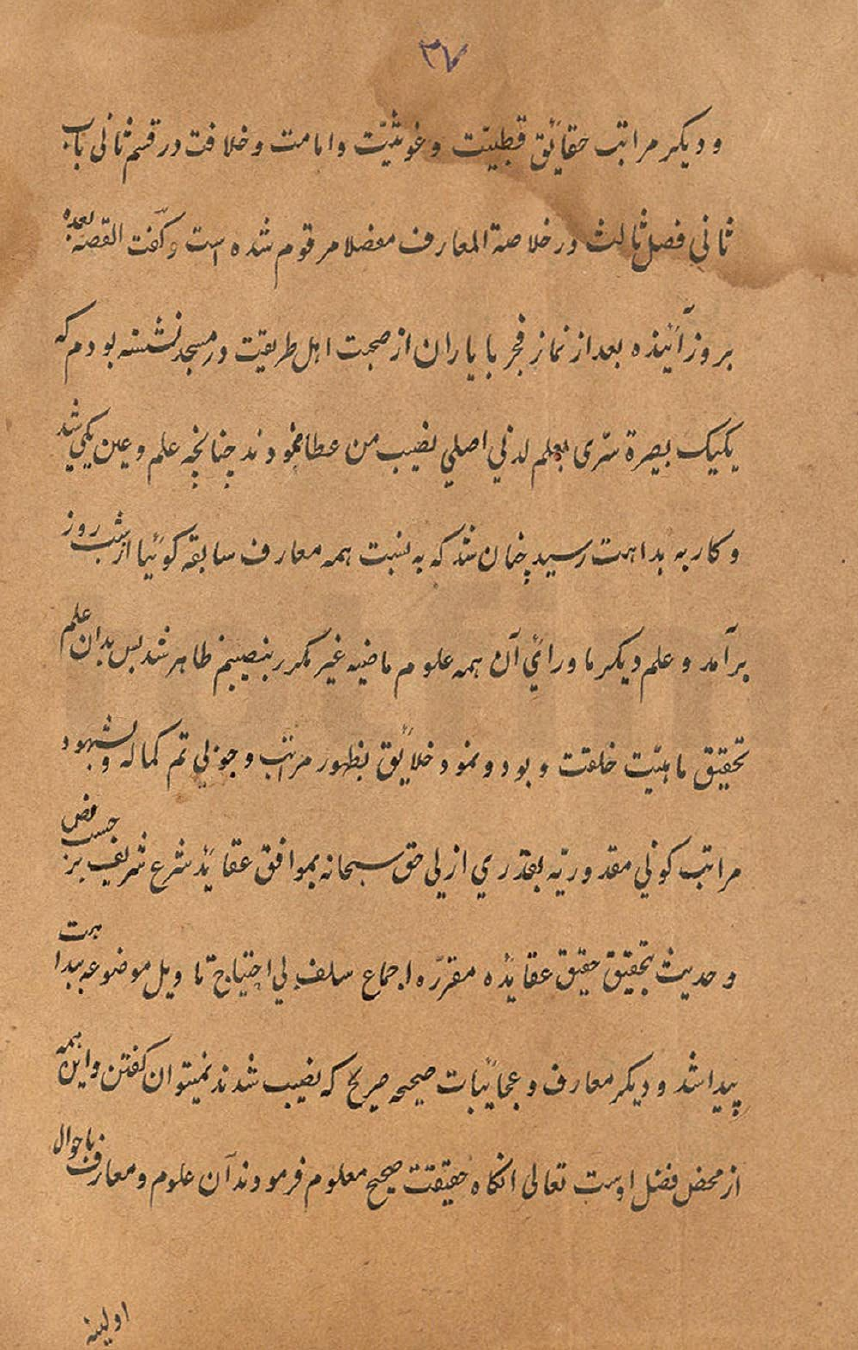 ۳۷
و دیکر مراتب حقایٔق قطبیّت و غوثیّت و امامت و خلافت در قسم ثانی باب
ثانی فصل ثالث در خلاصة المعارف مفضلا مرقوم شده است و کفت القصه بعده
بروز آینده بعد از نماز فجر با یاران از صحبت اهل طریقت در مسجد نشسته بودم که
یکیک بصیرة سرّی بعلم لدنی اصلی نصیب من عطا نمودند چنانچه علم و عین یکی شد
و کار به بداهت رسید چنان شد که به نسبت همه معارف سابقه کوئیا از شب روز
برآمد و علم دیکر ماورائی آن همه علوم ماضیه غیر مکرر بنصیبم ظاهر شد پس بدان علم
تحقیق ماهیّت خلقت و بود و نمود خلایٔق بظهور مراتب وجوبی تم کماله و شهود
مراتب کونی مقدوریّه بقدری ازلی حق سبحانه بموافق عقایٔد شرع شریف بر حسب نص
و حدیث بتحقیق حقیق عقایٔده مقرّره اجماع سلف بی احتیاج تاویل موضوعه ببداهت
پیدا شد و دیکر معارف و عجایٔبات صحیحه صریح که نصیب شدند نمیتوان کفتن و این همه
از محض فضل اوست تعالی انکاه حقیقت صحیح معلوم فرمودند آن علوم و معارف باحوال
اولیه